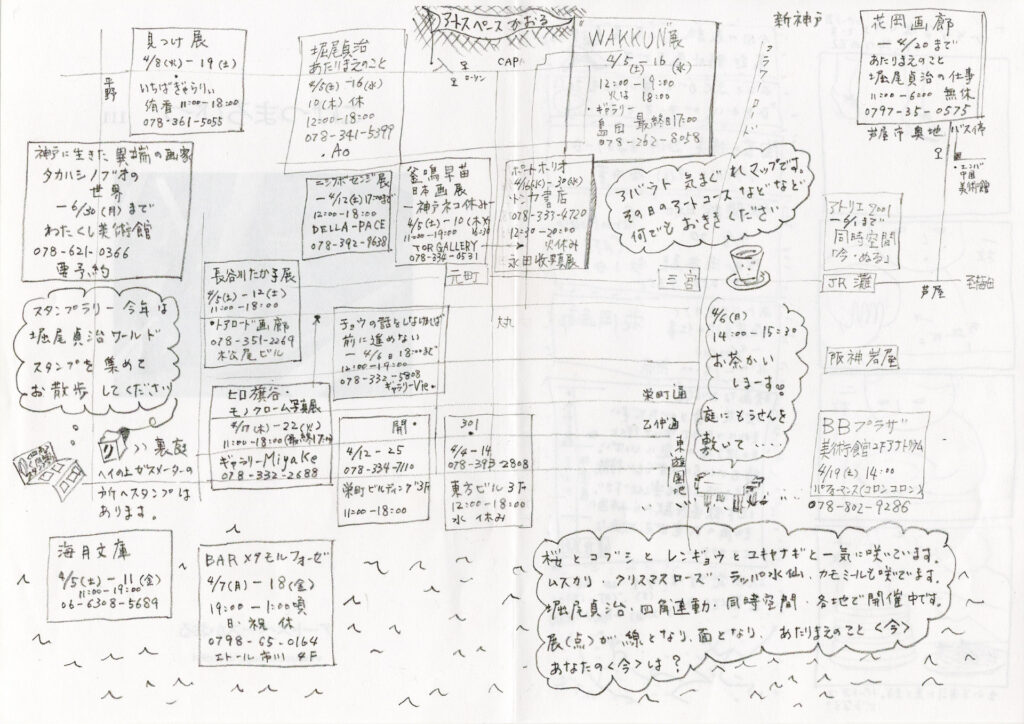 アートスペースかおる
CAP
ローソン
新神戸
平野
見つけ展
4/8(火)-19(土)
いちばぎゃらりぃ
侑香 11:00-18:00
078-361-5055
堀尾貞治
あたりまえのこと
4/5(土)-16(水)
10(木)休
12:00-18:00
078-341-5399
・Ao
WAKKUN展
4/5(土)-16(水)
12:00-19:00
火は 18:00
・ギャラリー
島田 最終日17:00
078-262-8058
花岡画廊
-4/20まで
あたりまえのこと
堀尾貞治の仕事
11:00-6:00 無休
0797-35-0575
芦屋市奥池
バス停
・エンバ
中国
美術館
神戸に生きた異端の画家
タカハシノブオの
世界
-6/30(月)まで
わたくし美術館
078-621-0366
要予約
-4/12(土)17:00まで
12:00-18:00
DELLA-PACE
078-392-9638
釜鳴早苗
日本画展
-神戸ネコ休み-
4/5(土)-10(木)
11:00-19:00 16:30
TOR GALLERY
078-334-0531
ポートホリオ
4/16(水)-30(水)
トンカ書店
078-333-4720
12:30-20:00
火休み
永田收写真展
アバウト 気まぐれマップです。
その日のアートコースなどなど
何でもおききください
アトリエ2001
-6/1まで
同時空間
「今・ぬる」
元町
三宮
JR灘
芦屋
至梅田
スタンプラリー 今年は
堀尾貞治ワールド
スタンプを集めて
お散歩してください
長谷川たか子展
4/5(土)-12(土)
11:00-18:00
・トアロード画廊
078-351-2269
松尾ビル
チョウの話をしなければ
前に進めない
-4/6日 18:00まで
12:00-19:00
078-332-5808
ギャラリーVie・
大丸
4/6(日)
14:00-15:30
お茶かい
しまーす。
庭にもうせんを
敷いて・・・
阪神岩屋
栄町通
乙仲通
東遊園地
ヒロ旗谷・
モノクローム写真展
4/17(木)-22(火)
11:00-18:00(最終17:00)
ギャラリーMiyake
078-332-2688
開・
4/12-25
078-334-7110
栄町ビルディング3F
11:00-18:00
301
4/4-14
078-393-2808
東方ビル3F
12:00-18:00
水 休み
BBプラザ
美術館
4/19(土)14:00
パフォーマンス(コロンコロン)
078-802-9286
裏庭
ヘイの上ガスメーターの
カゲへスタンプは
あります。
海月文庫
4/5(土)-11(金)
11:00-19:00
06-6308-5689
BARメタモルフォーゼ
4/7(月)-18(金)
19:00-1:00頃
日・祝 休
0798-65-0164
エトール市川 4F
桜とコブシとレンギョウとユキヤナギと一気に咲いています。
ムスカリ・クリスマスローズ・ラッパ水仙・カモミールも咲いてます。
堀尾貞治・四角連動・同時空間・各地で開催中です。
展(点)が線となり、面となり、あたりまえのこと〈今〉
あなたの〈今〉は？